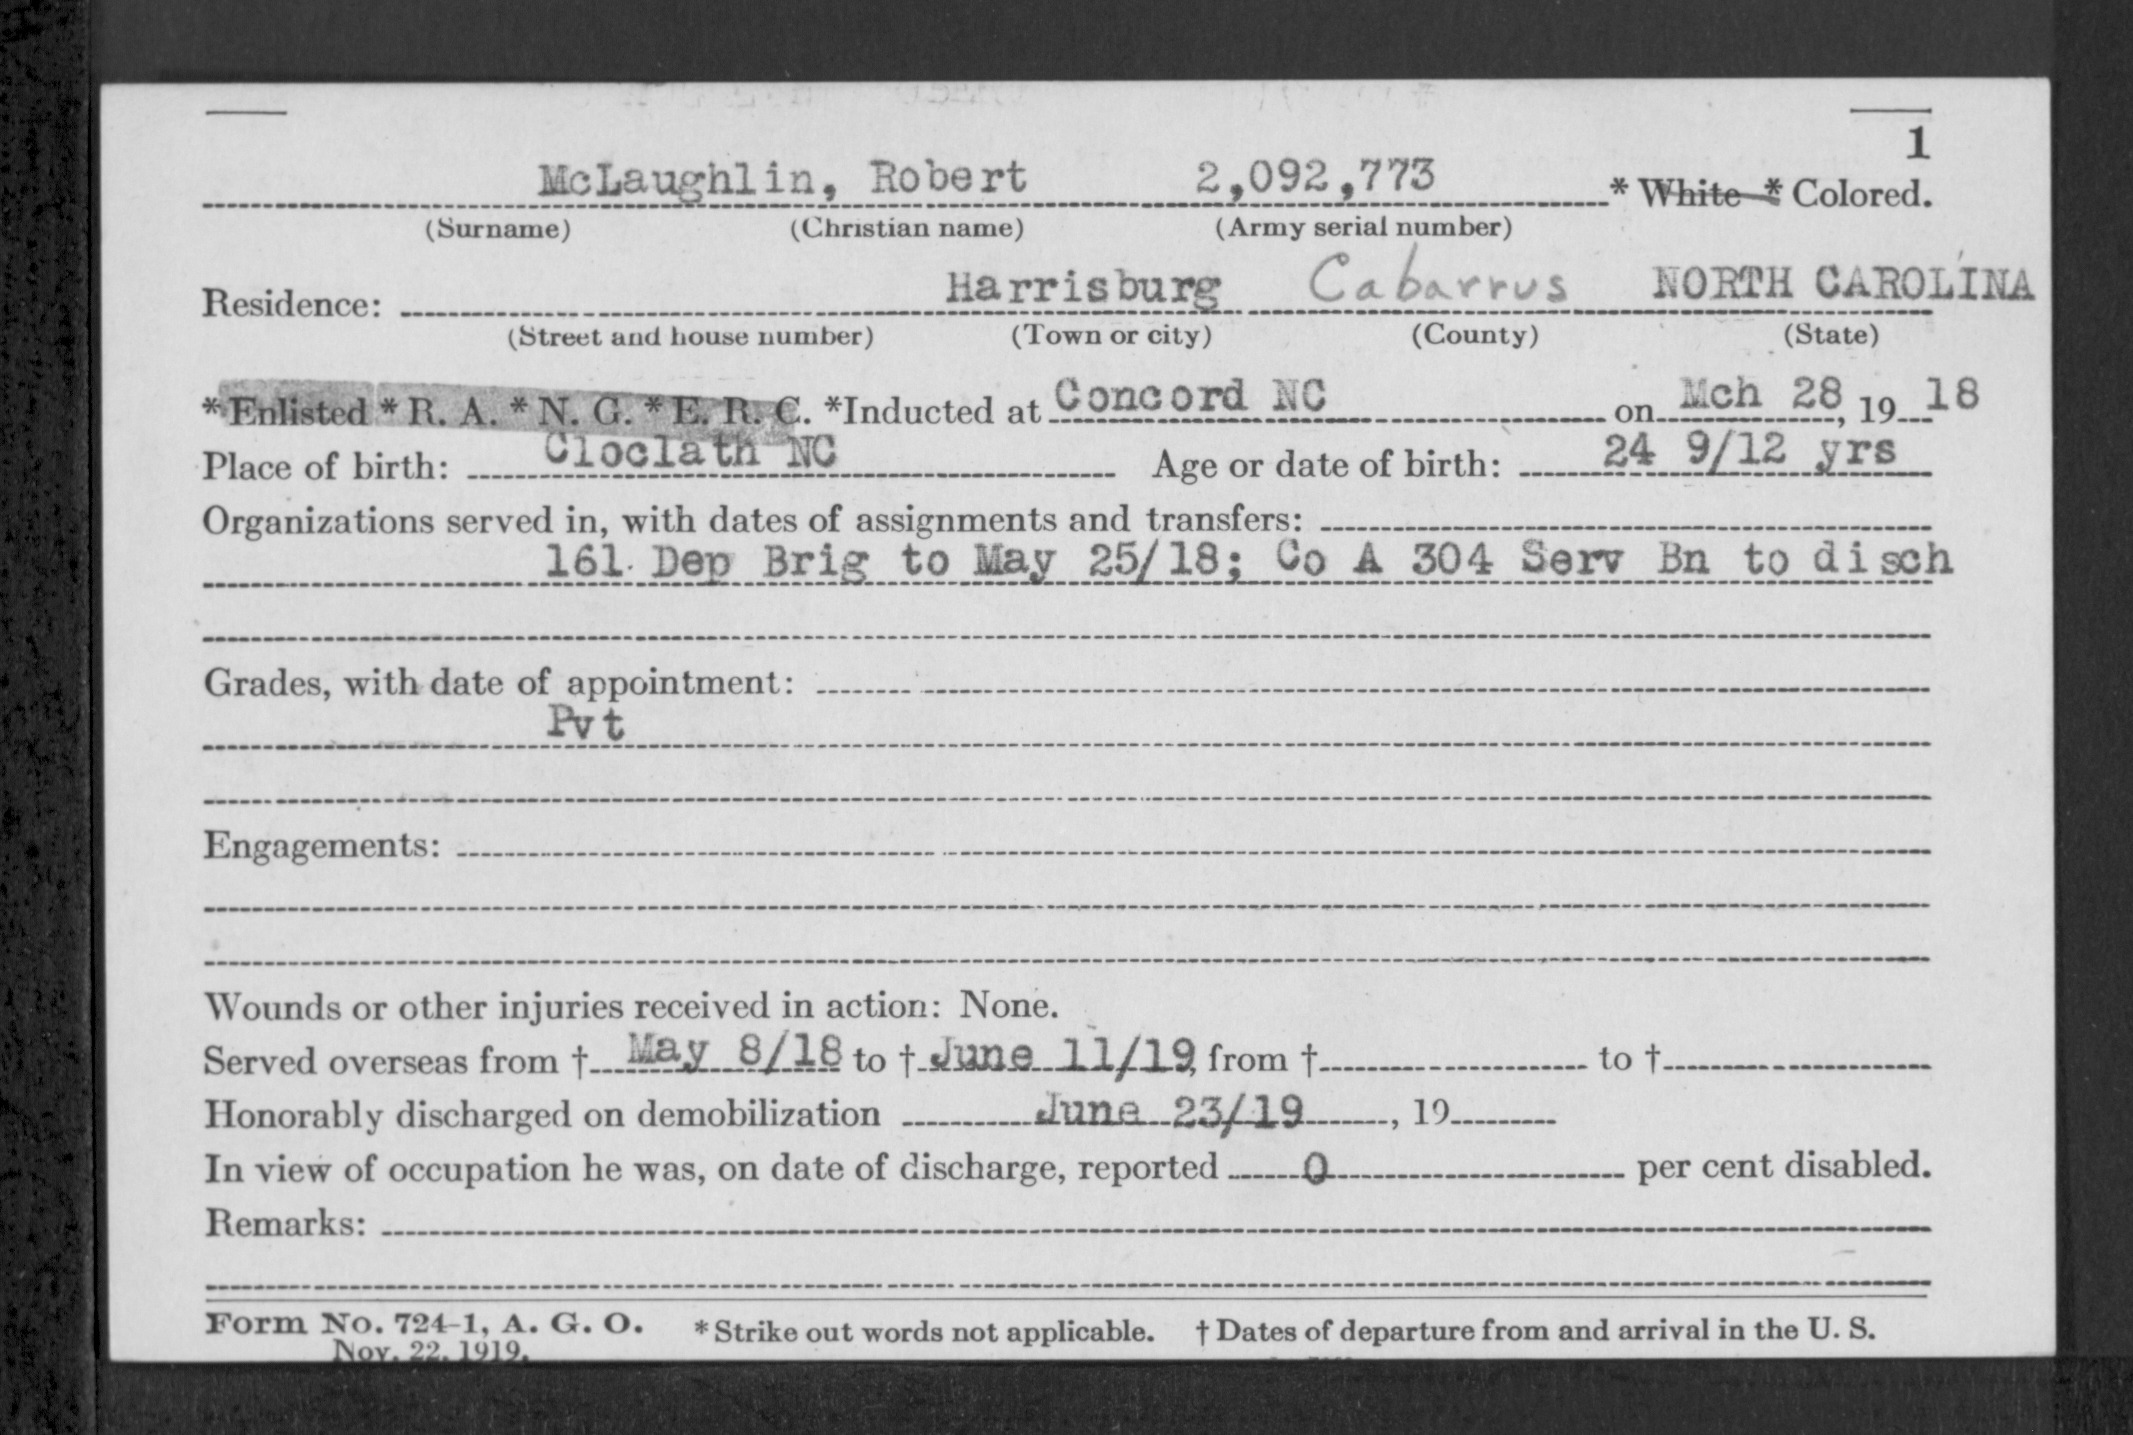 1
McLaughlin, Robert 2,092,773 * White * Colored.
(Surname) (Christian name) (Army serial number)
Residence: Harrisburg Cabarrus NORTH CAROLINA
(Street and house number) (Town or city) (County) (State)
*Enlisted *R. A. *N. G. *E. R. C. *Inducted at Concord NC on Mch 28, 19 18
Place of birth: Cloclath NC Age or date of birth: 24 9/12 yrs
Organizations served in, with dates of assignments and transfers:
161 Dep Brig to May 25/18; Co A 304 Serv Bn to disch
Grades, with date of appointment:
Pvt
Engagements:
Wounds or other injuries received in action: None.
Served overseas from † May 8/18 to † June 11/19, from † to †
Honorably discharged on demobilization June 23/19, 19
In view of occupation he was, on date of discharge, reported 0 per cent disabled.
Remarks:
Form No. 724-1, A. G. O. *Strike out words not applicable. †Dates of departure from and arrival in the U. S.
Nov. 22, 1919.